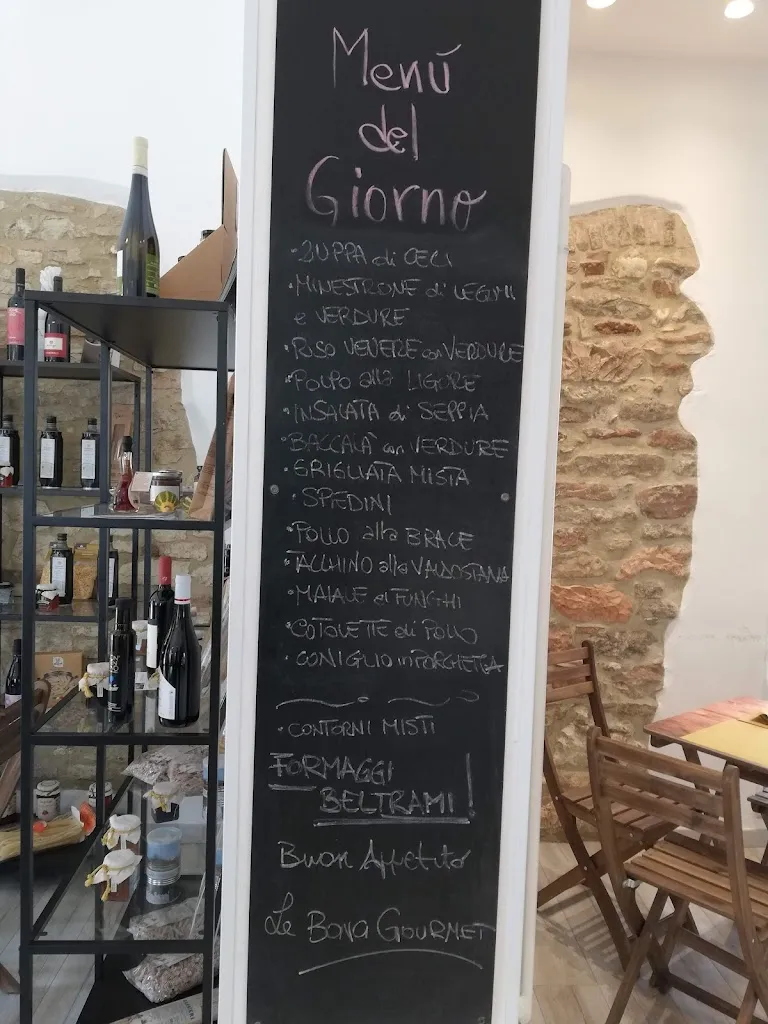 Menú
del
Giorno
• ZUPPA di CECI
• MINESTRONE di LEGUMI
e VERDURE
• RISO VENERE con VERDURE
• POLPO alla LIGURE
• INSALATA di SEPPIA
• BACCALÀ con VERDURE
• GRIGLIATA MISTA
• SPIEDINI
• POLLO alla BRACE
• TACCHINO alla VALDOSTANA
• MAIALE ai FUNGHI
• COTOLETTE di POLLO
• CONIGLIO in PORCHETTA
• CONTORNI MISTI
FORMAGGI
BELTRAMI!
Buon Appetito
Le BONA GOURMET